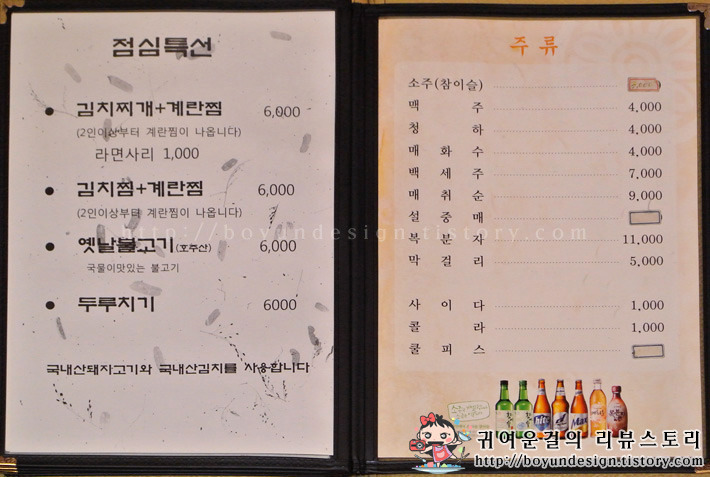 점심특선
● 김치찌개+계란찜 6,000
(2인이상부터 계란찜이 나옵니다)
라면사리 1,000
● 김치찜+계란찜 6,000
(2인이상부터 계란찜이 나옵니다)
● 옛날불고기(호주산) 6,000
국물이맛있는 불고기
● 두루치기 6000
국내산돼지고기와 국내산김치를 사용합니다
주 류
소주(참이슬)
맥 주 4,000
청 하 4,000
매 화 수 4,000
백 세 주 7,000
매 취 순 9,000
설 중 매
복 분 자 11,000
막 걸 리 5,000
사 이 다 1,000
콜 라 1,000
쿨 피 스
http://boyundesign.tistory.com
귀여운걸의 리뷰스토리
http://boyundesign.tistory.com